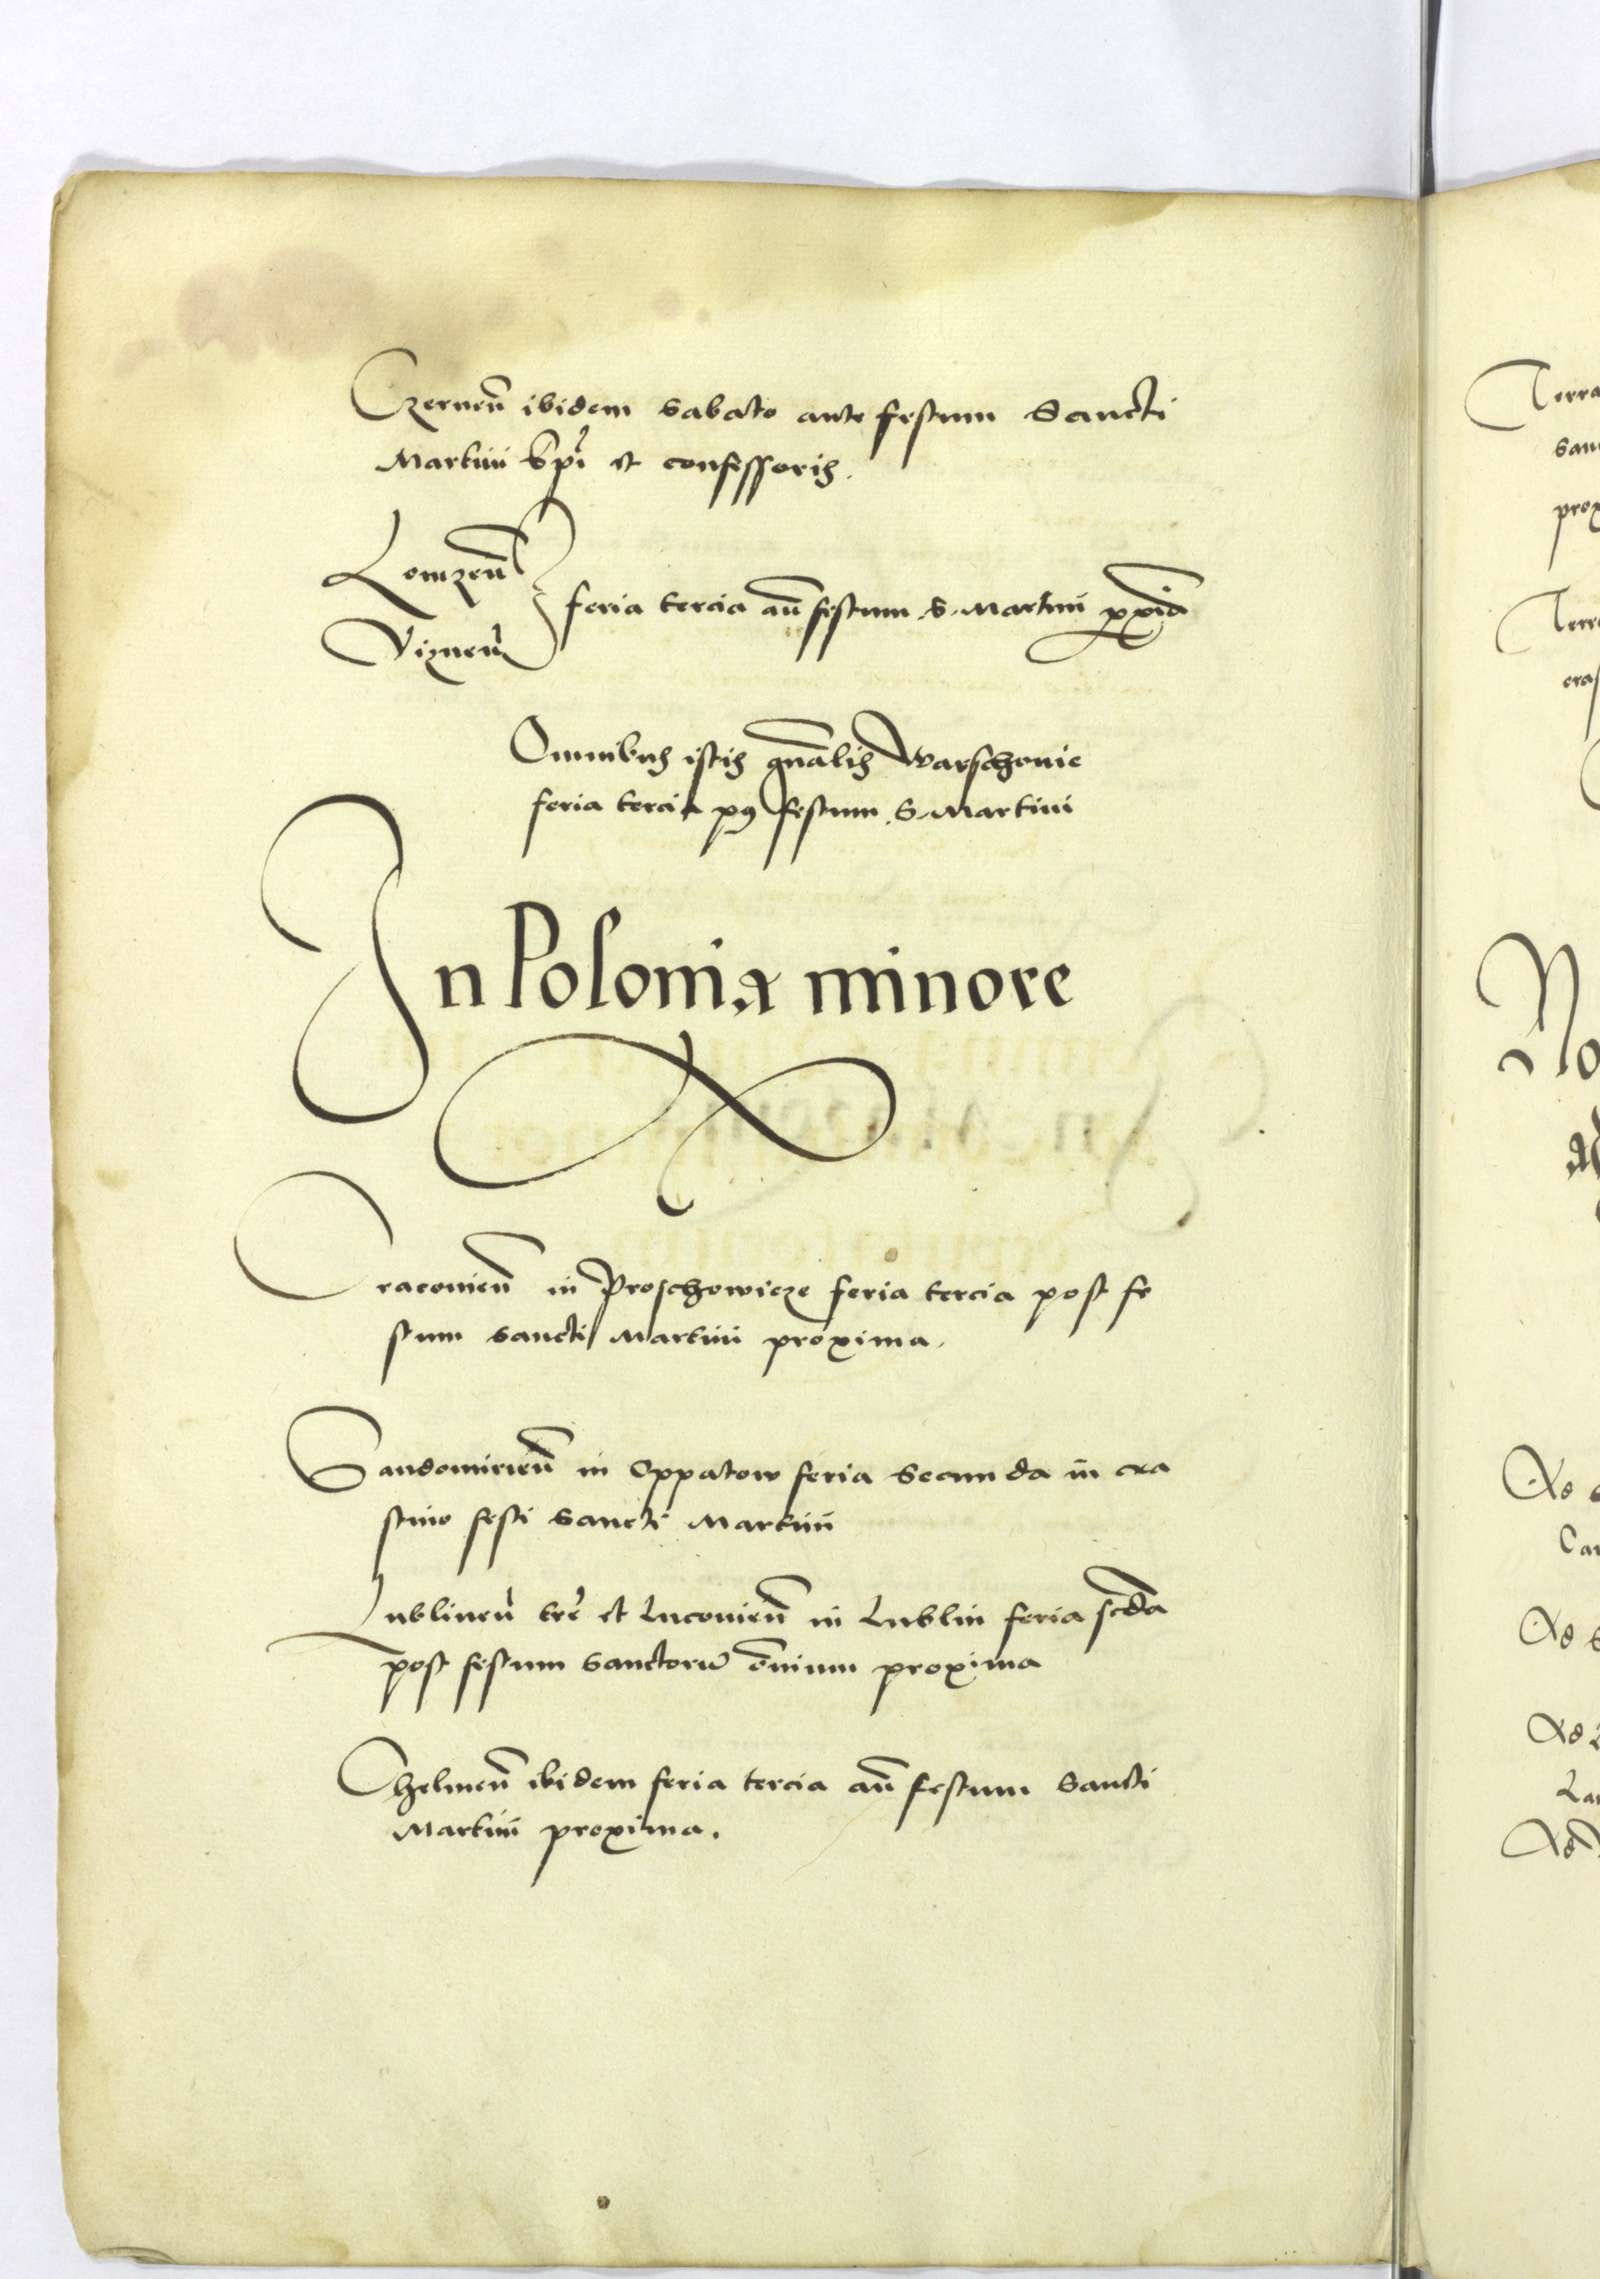 Czerneñ ibidem sabato ante festum Sancti
Martini Ep̃i et confessoris.
Lomzeñ
Vizneñ
feria tercia añ festum S. Martini px̃ia
Omnibus istis gñalis Warschouie
feria tercia p9 festum S. Martini
In Polonia minore
Cracouieñ in Proschowicze feria tercia post fe
stum sancti Martini proxima.
Sandomirieñ in Oppatow feria Secunda in cra
stino festi Sancti Martini
Lublineñ tr̃e et Lucouieñ in Lublin feria scđa
post festum sanctorũ õnium proxima
Chelmeñ ibidem feria tercia añ festum Sancti
Martini proxima.
Terra
san
prox
Terra
cras
No
Ad
Car
Ad
Ad
Lan
Ad